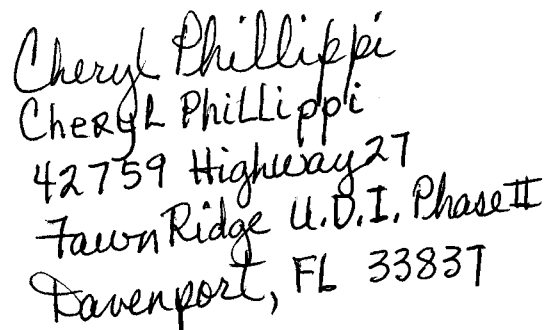 Cheryl Phillippi
Cheryl Phillippi
42759 Highway 27
Fawn Ridge U.D.I. Phase II
Davenport, FL 33837